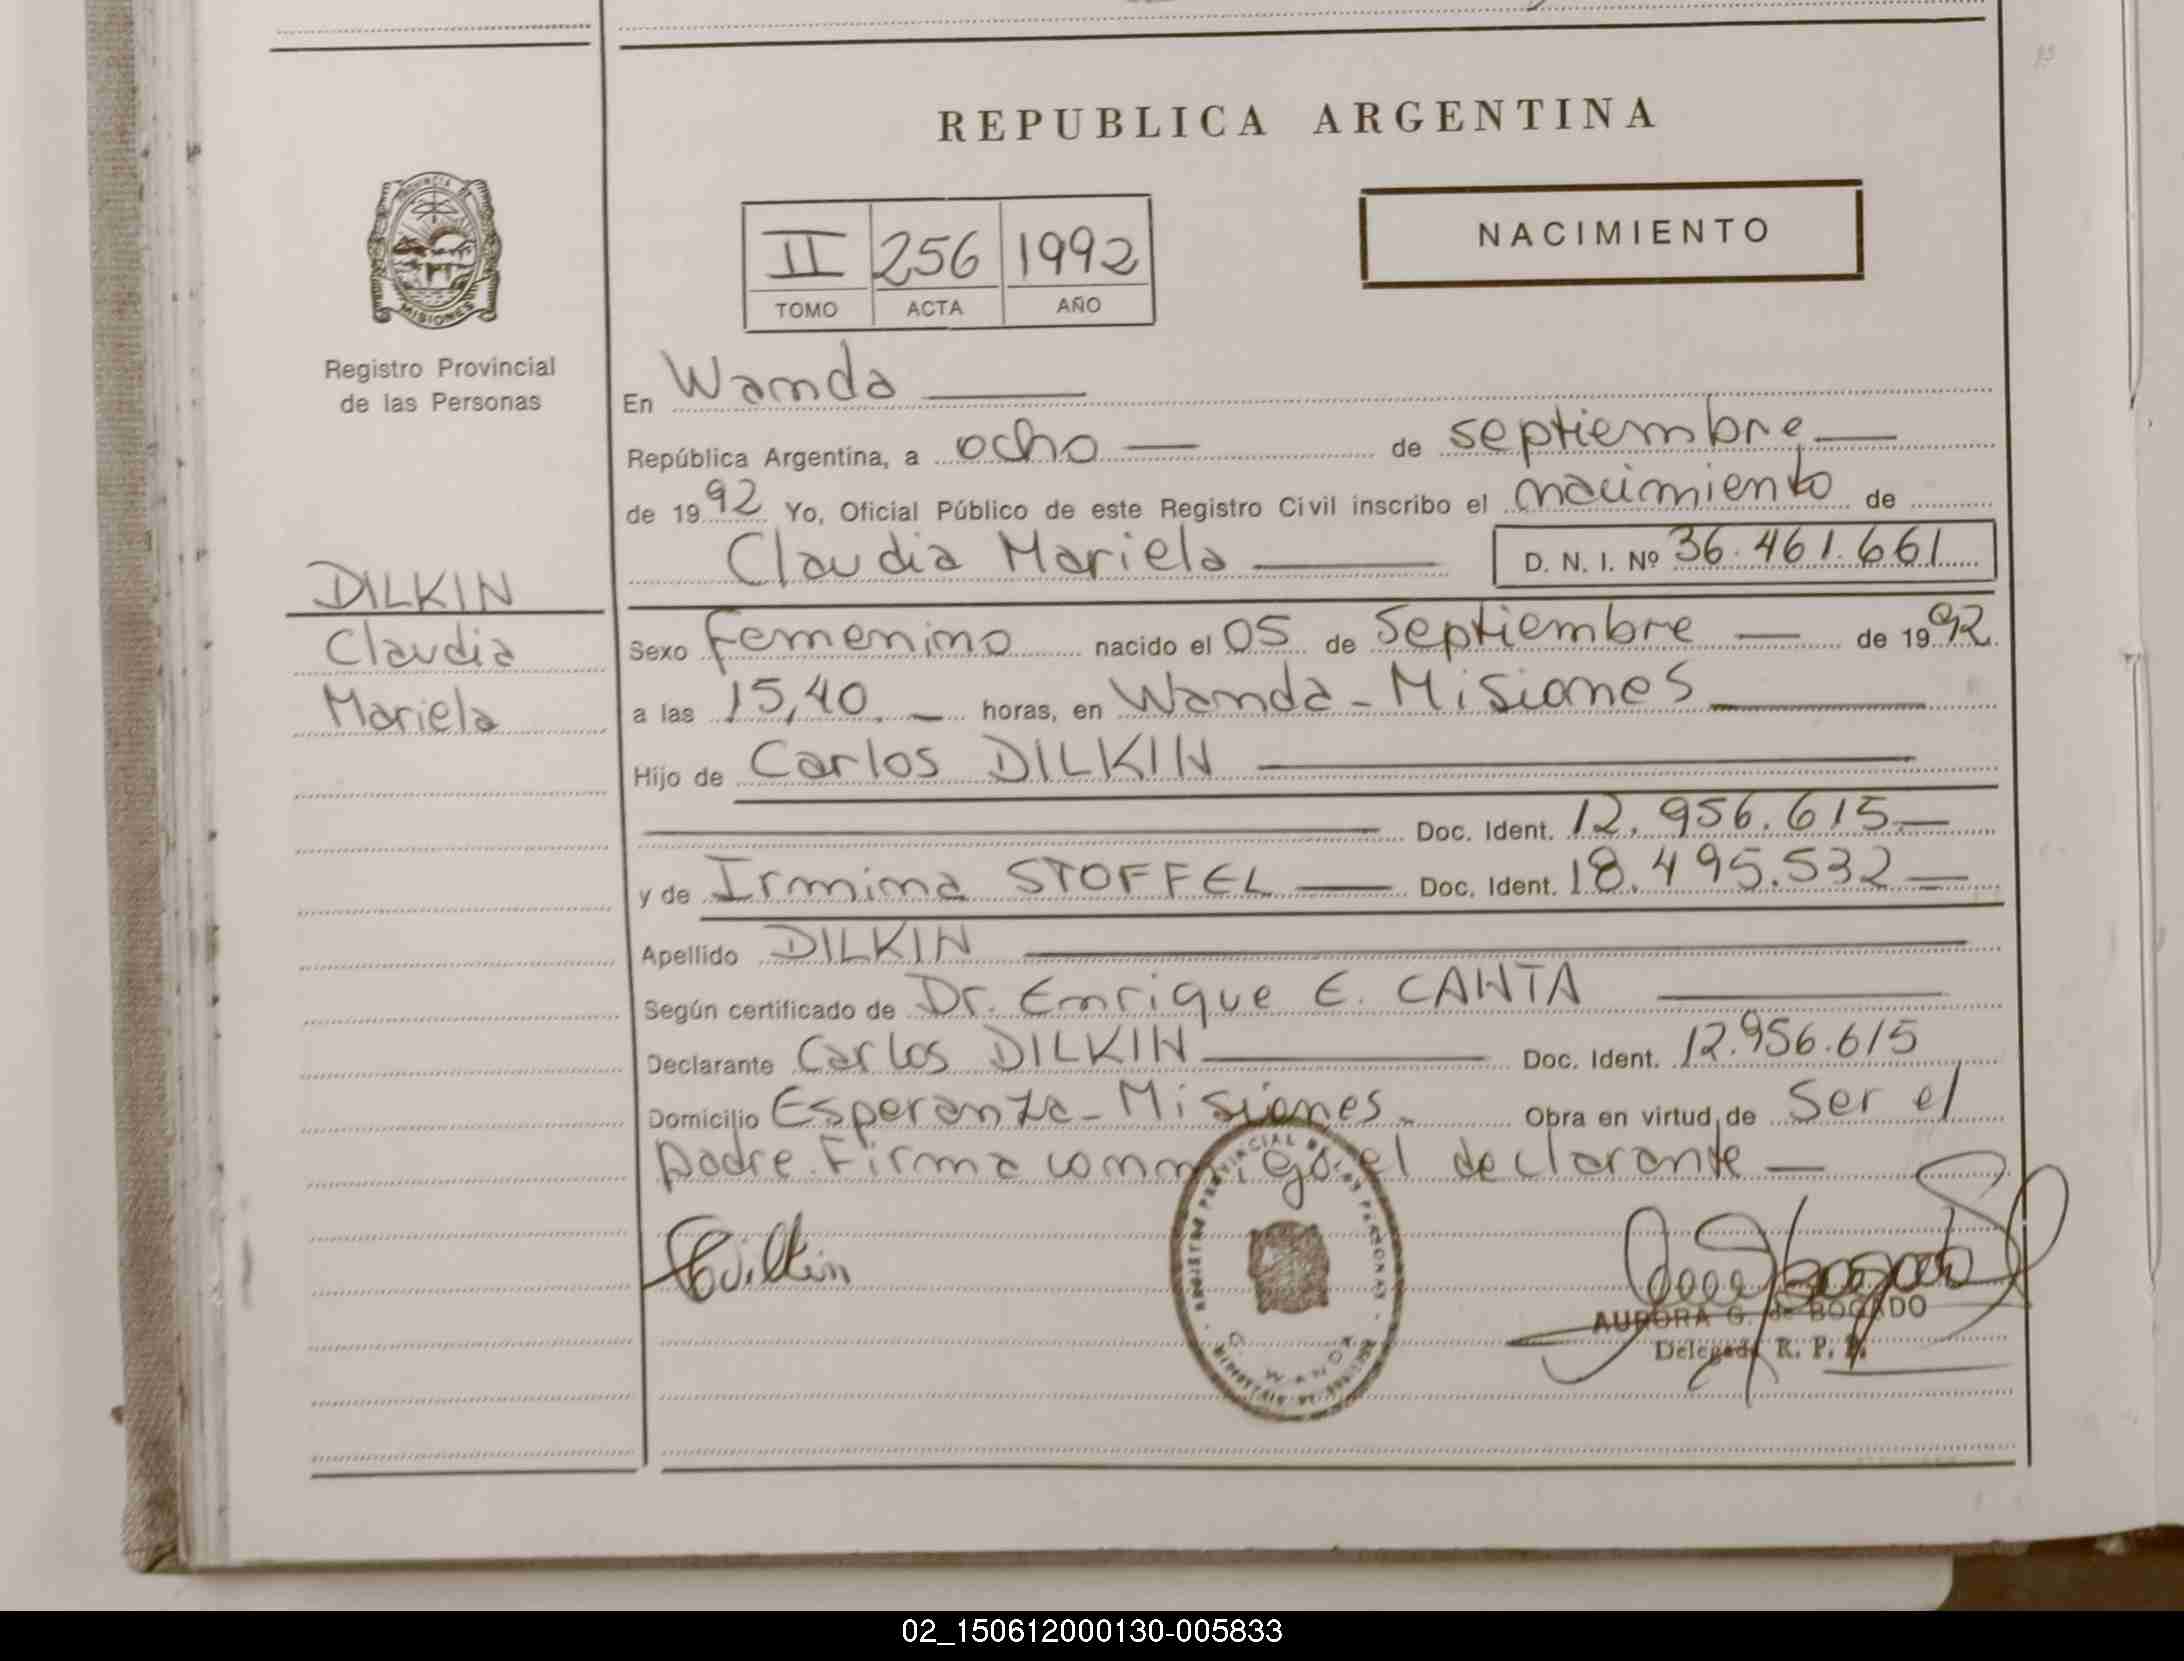 REPUBLICA ARGENTINA
NACIMIENTO
II 256 1992
TOMO ACTA AÑO
PROVINCIA DE
MISIONES
Registro Provincial
de las Personas
DILKIN
Claudia
Mariela
En Wanda
República Argentina, a ocho de septiembre
de 1992 Yo, Oficial Público de este Registro Civil inscribo el nacimiento de
Claudia Mariela D. N. I. Nº 36.461.661
Sexo femenino nacido el 05 de Septiembre de 1992.
a las 15,40 horas, en Wanda - Misiones
Hijo de Carlos DILKIN
Doc. Ident. 12.956.615
y de Irmina STOFFEL Doc. Ident. 18.495.532
Apellido DILKIN
Según certificado de Dr. Enrique E. CANTA
Declarante Carlos DILKIN Doc. Ident. 12.956.615
Domicilio Esperanza - Misiones. Obra en virtud de Ser el
padre. Firma conmigo el declarante
REGISTRO PROVINCIAL DE LAS PERSONAS
WANDA
AURORA G. de BOGADO
Delegada R. P. P.
02_150612000130-005833